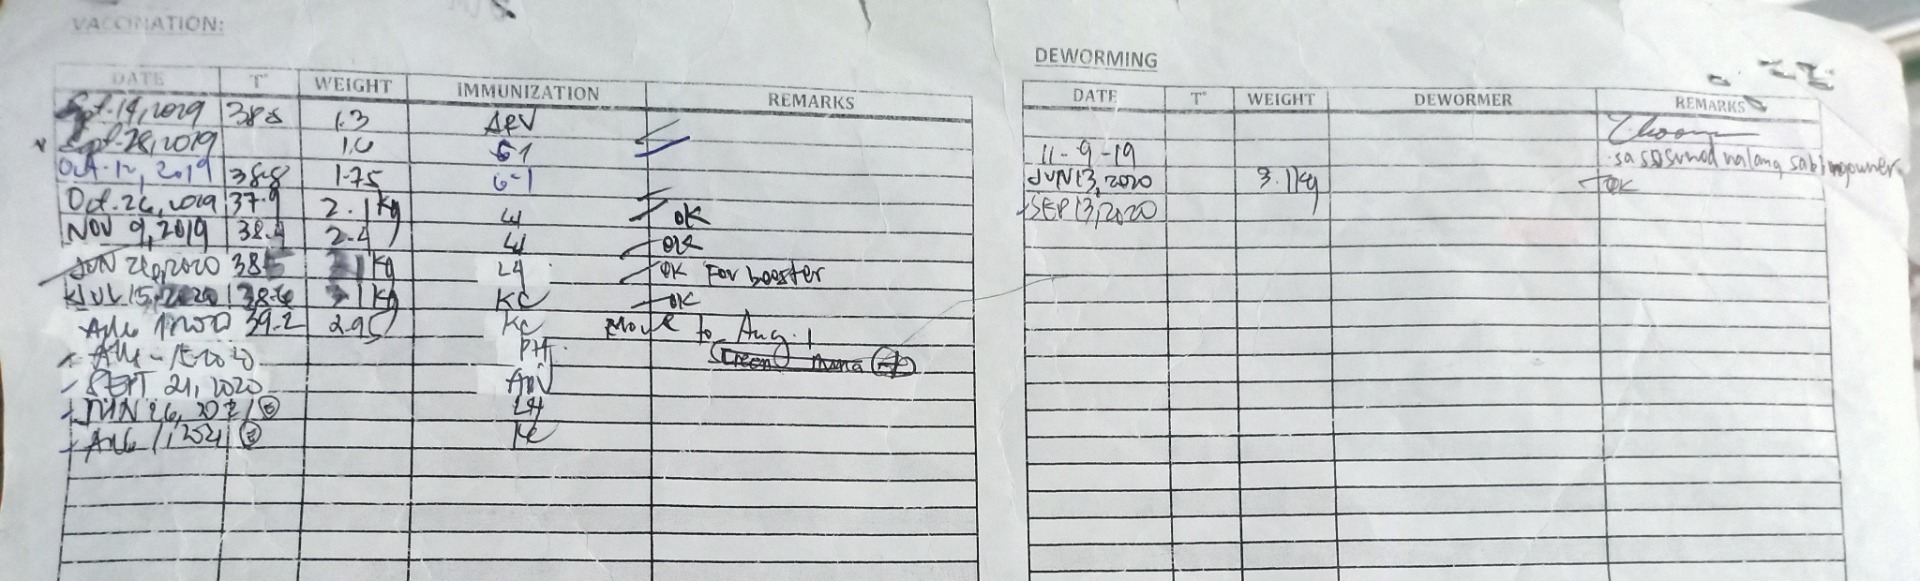 VACCINATION:
DATE T° WEIGHT IMMUNIZATION REMARKS
Sept. 14, 2019 38.8 1.3 ARV
Sept. 28, 2019 1.6 6-1
Oct. 12, 2019 38.8 1.75 6-1
Oct. 26, 2019 37.9 2.1kg OK
NOV 9, 2019 38.4 2.4 OK
JUN 2020 38.5 1kg L4 OK For booster
JUL 15, 2020 38.6 1kg KC OK
AUG 1 2020 39.2 2.95 KC Move to Aug. 1
SEPT 21, 2020
26, 2021 L4
AUG 1, 2021 KC
DEWORMING
DATE T° WEIGHT DEWORMER REMARKS
11-9-19 sa susunod nalang sabi ng owner
JUN 13, 2020 3.1kg OK
SEP 13, 2020